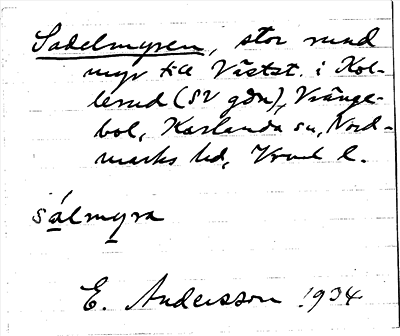 Sadelmyren, stor rund
myr till Västst. i Kol-
lerud (SV gdn), Vränge-
bol, Karlanda sn, Nord-
marks hd, Vrml l.
sålmyra
E. Andersson 1934